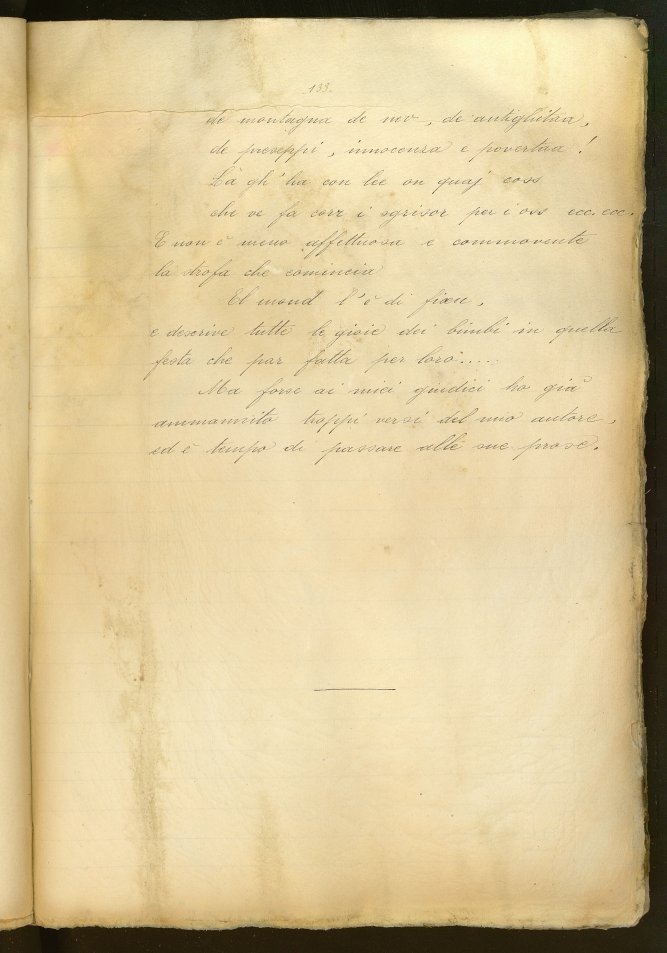 133.
de montagna de nev, de antighitaa,
de preseppi, innocenza e povertaa!
Là gh'ha con lee on quaj coss
che ve fa corr i sgrisor per i oss ecc. ecc.
E non è meno affettuosa e commovente
la strofa che comincia
El mond l'è di fiœu,
e descrive tutte le gioie dei bimbi in quella
festa che par fatta per loro.....
Ma forse ai miei giudici ho già
ammannito troppi versi del mio autore,
ed è tempo di passare alle sue prose.